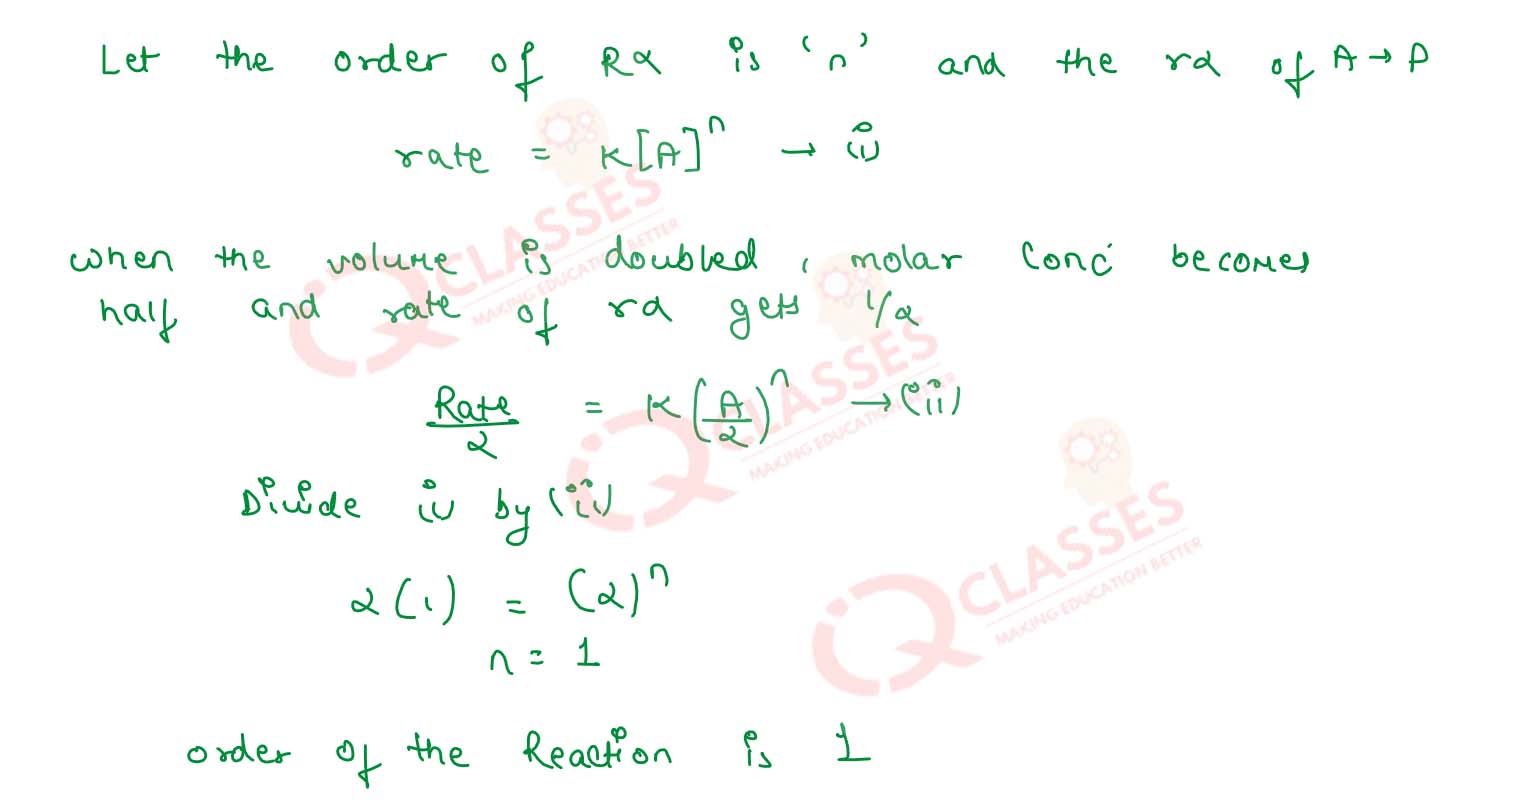 Let the order of Rx is 'n' and the rx of A → P
rate = K[A]^n → (i)
when the volume is doubled, molar conc becomes
half and rate of rx gets 1/2
Rate/2 = K(A/2)^n → (ii)
Divide (i) by (ii)
2(1) = (2)^n
n = 1
order of the Reaction is 1
IQ CLASSES
MAKING EDUCATION BETTER
IQ CLASSES
MAKING EDUCATION BETTER
IQ CLASSES
MAKING EDUCATION BETTER